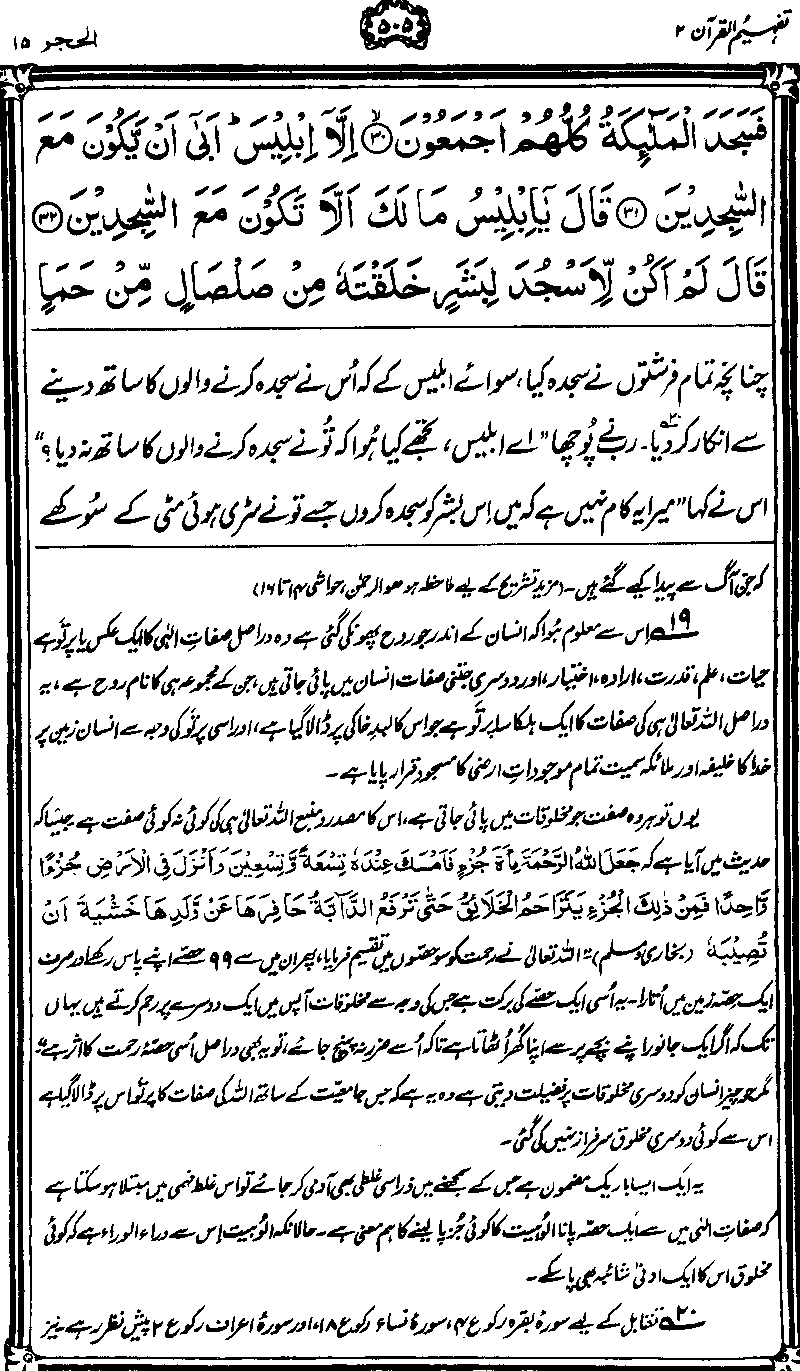 تفہیم القرآن ۲
۵۰۵
الحجر ۱۵
فَسَجَدَ الْمَلٰٓئِكَةُ كُلُّهُمْ اَجْمَعُوْنَ ۙ﴿۳۰﴾ اِلَّاۤ اِبْلِيْسَ ؕ اَبٰۤى اَنْ يَّكُوْنَ مَعَ
السّٰجِدِيْنَ ﴿۳۱﴾ قَالَ يٰۤاِبْلِيْسُ مَا لَكَ اَلَّا تَكُوْنَ مَعَ السّٰجِدِيْنَ ﴿۳۲﴾
قَالَ لَمْ اَكُنْ لِّاَسْجُدَ لِبَشَرٍ خَلَقْتَهٗ مِنْ صَلْصَالٍ مِّنْ حَمَاٍ
چنانچہ تمام فرشتوں نے سجدہ کیا، سوائے ابلیس کے کہ اُس نے سجدہ کرنے والوں کا ساتھ دینے
سے انکار کر دیا۔۲۰ رب نے پُوچھا "اے ابلیس، تجھے کیا ہُوا کہ تُو نے سجدہ کرنے والوں کا ساتھ نہ دیا؟"
اس نے کہا "میرا یہ کام نہیں ہے کہ میں اِس بشر کو سجدہ کروں جسے تو نے سڑی ہوئی مٹی کے سُوکھے
کہ جن آگ سے پیدا کیے گئے ہیں۔ (مزید تشریح کے لیے ملاحظہ ہو الرحمٰن، حواشی ۱۴ تا ۱۶)
۱۹ اِس سے معلوم ہُوا کہ انسان کے اندر جو روح پھونکی گئی ہے وہ دراصل صفاتِ الٰہی کا ایک عکس یا پرتَو ہے
حیات، علم، قدرت، ارادہ، اختیار، اور دوسری جتنی صفات انسان میں پائی جاتی ہیں، جن کے مجموعہ ہی کا نام روح ہے، یہ
دراصل اللہ تعالیٰ ہی کی صفات کا ایک ہلکا سا پرتَو ہے جو اس کالبدِ خاکی پر ڈالا گیا ہے، اور اسی پرتَو کی وجہ سے انسان زمین پر
خدا کا خلیفہ اور ملائکہ سمیت تمام موجوداتِ ارضی کا مسجود قرار پایا ہے۔
یوں تو ہر وہ صفت جو مخلوقات میں پائی جاتی ہے، اس کا مصدر و منبع اللہ تعالیٰ ہی کی کوئی نہ کوئی صفت ہے۔ جیسا کہ
حدیث میں آیا ہے کہ جَعَلَ اللهُ الرَّحْمَةَ مِاَةَ جُزْءٍ فَاَمْسَكَ عِنْدَهٗ تِسْعَةً وَّتِسْعِيْنَ وَاَنْزَلَ فِى الْاَرْضِ جُزْءًا
وَّاحِدًا فَمِنْ ذٰلِكَ الْجُزْءِ يَتَرَاحَمُ الْخَلَائِقُ حَتّٰى تَرْفَعَ الدَّآبَّةُ حَافِرَهَا عَنْ وَّلَدِهَا خَشْيَةَ اَنْ
تُصِيْبَهٗ (بخاری و مسلم)۔ "اللہ تعالیٰ نے رحمت کو سو حصّوں میں تقسیم فرمایا، پھر ان میں سے ۹۹ حصّے اپنے پاس رکھے اور صرف
ایک حصّہ زمین میں اُتارا۔ یہ اُسی ایک حصّے کی برکت ہے جس کی وجہ سے مخلوقات آپس میں ایک دوسرے پر رحم کرتے ہیں یہاں
تک کہ اگر ایک جانور اپنے بچے پر سے اپنا کھُر اُٹھاتا ہے تاکہ اُسے ضرر نہ پہنچ جائے، تو یہ بھی دراصل اُسی حصّۂ رحمت کا اثر ہے"۔
مگر جو چیز انسان کو دوسری مخلوقات پر فضیلت دیتی ہے وہ یہ ہے کہ جس جامعیّت کے ساتھ اللہ کی صفات کا پرتَو اس پر ڈالا گیا ہے
اس سے کوئی دوسری مخلوق سرفراز نہیں کی گئی۔
یہ ایک ایسا باریک مضمون ہے جس کے سمجھنے میں ذرا سی غلطی بھی آدمی کر جائے تو اس غلط فہمی میں مبتلا ہو سکتا ہے
کہ صفاتِ الٰہی میں سے ایک حصّہ پانا الُوہیت کا کوئی جُز پا لینے کا ہم معنی ہے۔ حالانکہ الُوہیت اِس سے وراء الوراء ہے کہ کوئی
مخلوق اس کا ایک ادنیٰ شائبہ بھی پا سکے۔
۲۰ تقابل کے لیے سورۂ بقرہ رکوع ۴، سورۂ نساء رکوع ۱۸، اور سورۂ اعراف رکوع ۲ پیشِ نظر رہے۔ نیز